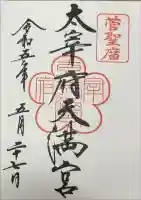 菅聖廟
太宰府天満宮
令和五年
五月二十七日